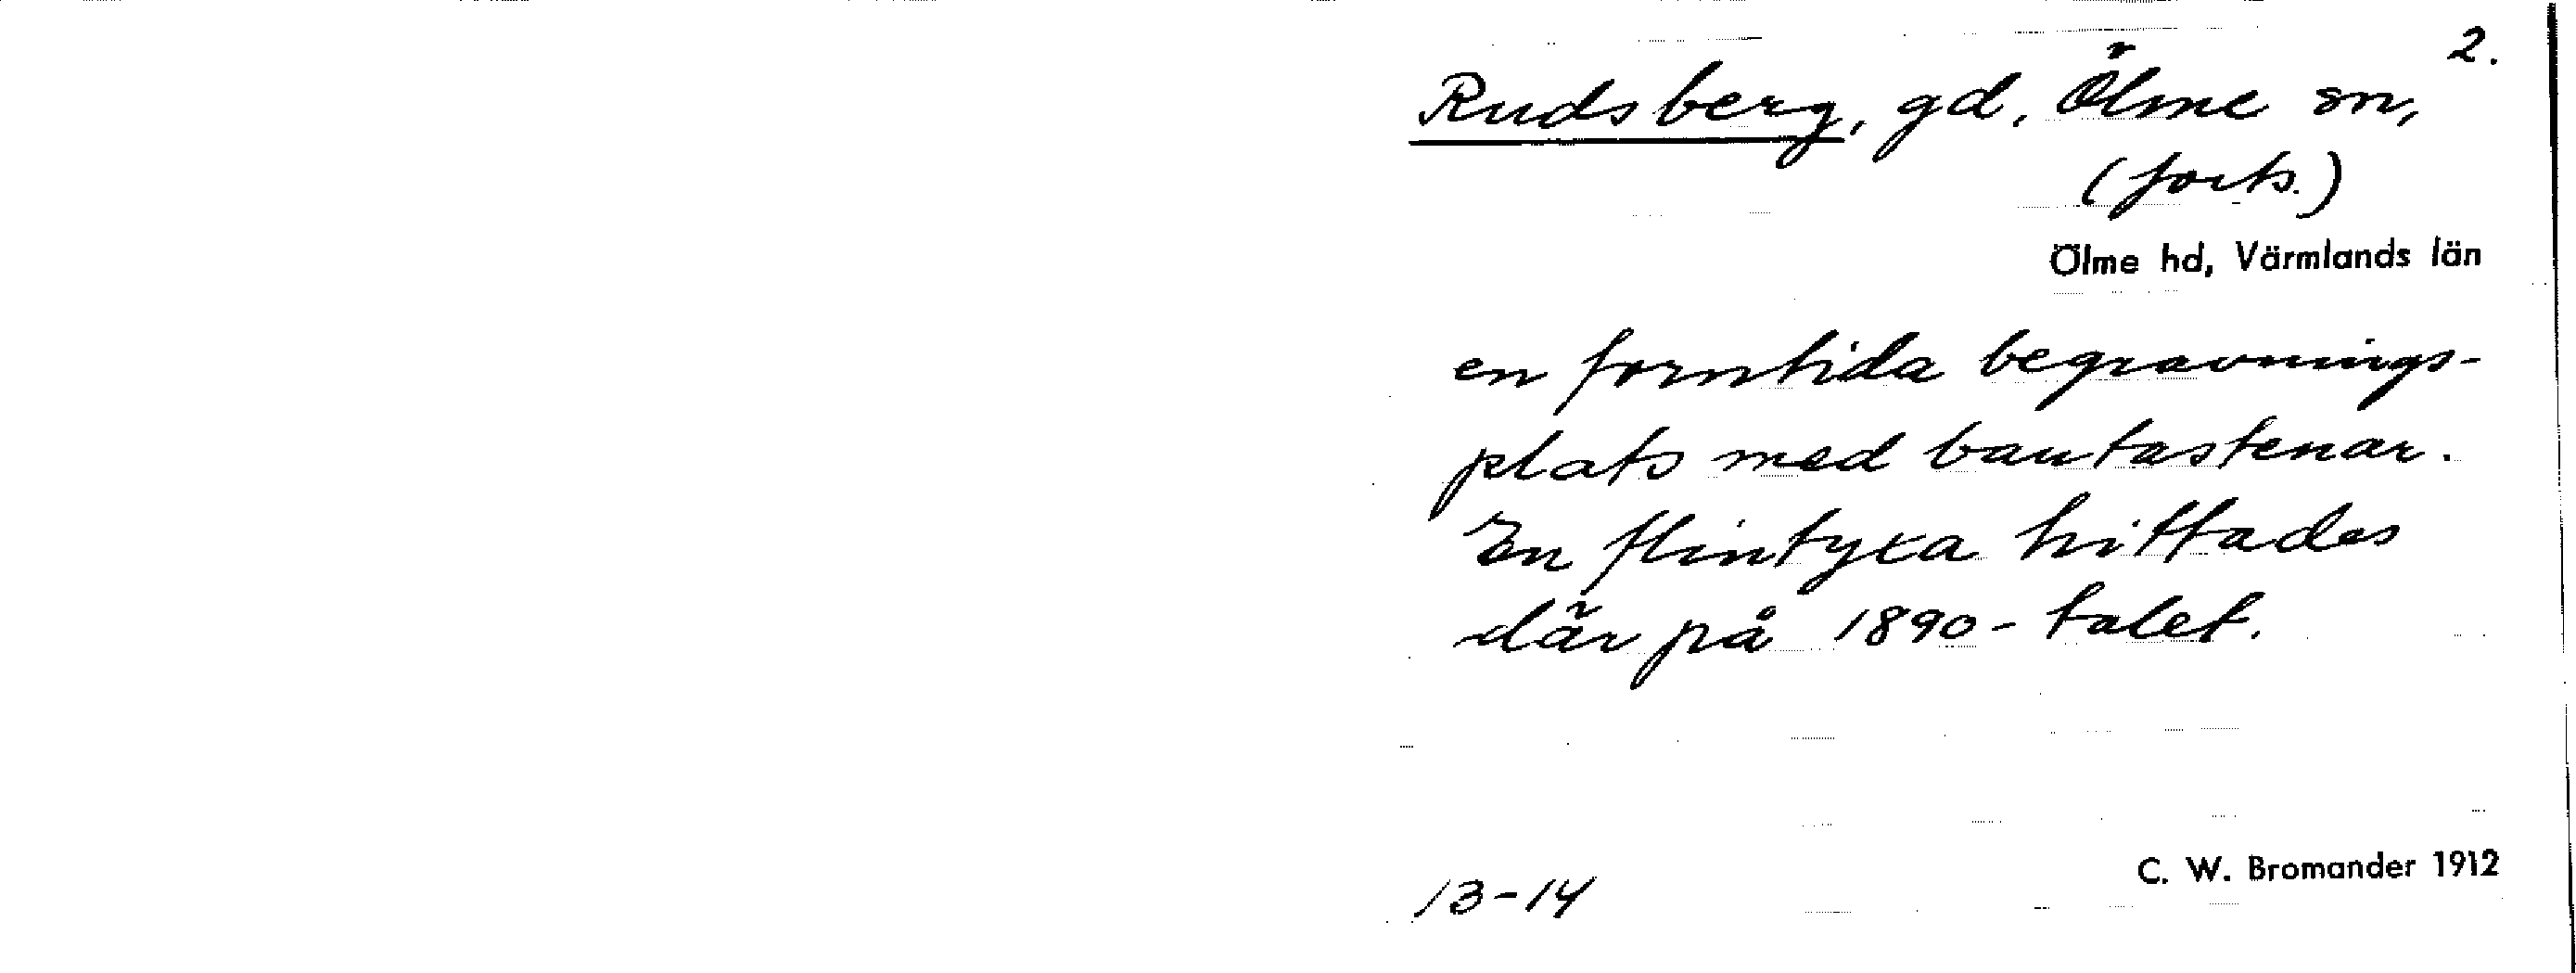 2.
Rudsberg, gd, Ölme sn,
(forts.)
Ölme hd, Värmlands län
en forntida begravnings-
plats med bautastenar.
En flintyxa hittades
där på 1890-talet.
C. W. Bromander 1912
13-14